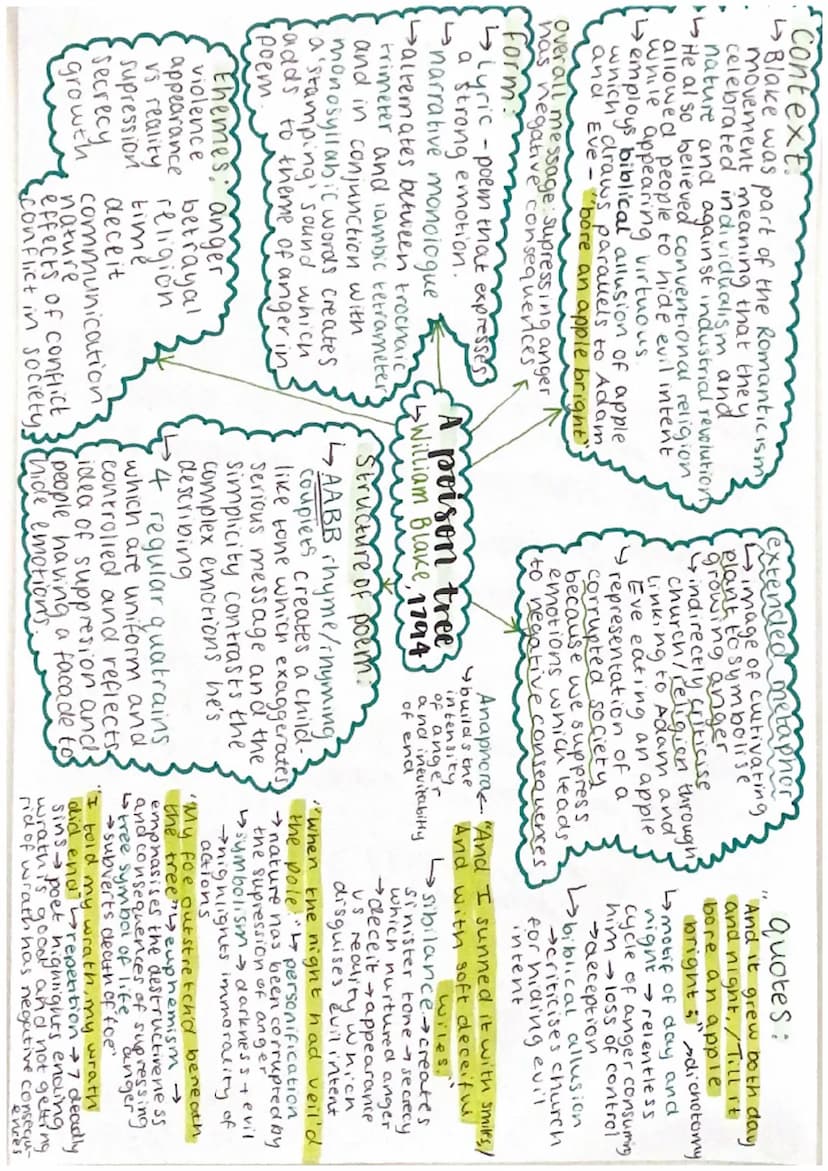 A poison tree
↳ William Blake, 1794
Context:
↳ Blake was part of the Romanticism
movement meaning that they
celebrated individualism and
nature and against industrial revolution
↳ He also believed conventional religion
allowed people to hide evil intent
while appearing virtuous.
↳ employs biblical allusion of apple
which draws parallels to Adam
and Eve - "bore an apple bright".
overall message: supressing anger
has negative consequences
form:
↳ Lyric - poem that expresses
a strong emotion.
↳ narrative monologue
↳ alternates between trochaic
trimeter and iambic tetrameter
and in conjunction with
monosyllabic words creates
a 'stamping' sound which
adds to theme of anger in
poem.
themes:
anger
violence
betrayal
appearance
vs reality
religion
supression
time
secrecy
deceit
growth
communication
nature
effects of conflict
conflict in society
extended metaphor
↳ image of cultivating
plant to symbolise
growing anger
↳ indirectly criticise
church/religion through
linking to Adam and
Eve eating an apple
↳ representation of a
corrupted society
because we suppress
emotions which leads
to negative consequences
Structure of poem:
↳ AABB rhyme/rhyming
couplet creates a child-
like tone which exaggerates
serious message and the
simplicity contrasts the
complex emotions he's
describing
↳ 4 regular quatrains
which are uniform and
controlled and reflects
idea of suppresion and
people having a facade to
hide emotions.
quotes:
"And it grew both day
and night, / Till it
bore an apple
bright;" → dichotomy
↳ motif of day and
night → relentless
cycle of anger consuming
him → loss of control
→ deception
↳ biblical allusion
→ criticises church
for hiding evil
intent
Anaphora ← "And I sunned it with smiles/
And with soft deceitful
wiles."
↳ builds the
intensity
of anger
and inevitability
of end
↳ sibilance → creates
sinister tone → secrecy
which nurtured anger
→ deceit → appearance
vs reality which
disguises evil intent
"when the night had veil'd
the pole." ↳ personification
→ nature has been corrupted by
the supression of anger
↳ symbolism → darkness + evil
→ highlights immorality of
actions
"My foe outstretch'd beneath
the tree" ↳ euphemism →
emphasises the destructiveness
and consequences of supressing
anger
↳ tree symbol of life,
→ subverts death of 'foe'
"I told my wrath, my wrath
did end" ↳ repetition → 7 deadly
sins → poet highlights ending
wrath is good and not getting
rid of wrath has negative consequ-
ences